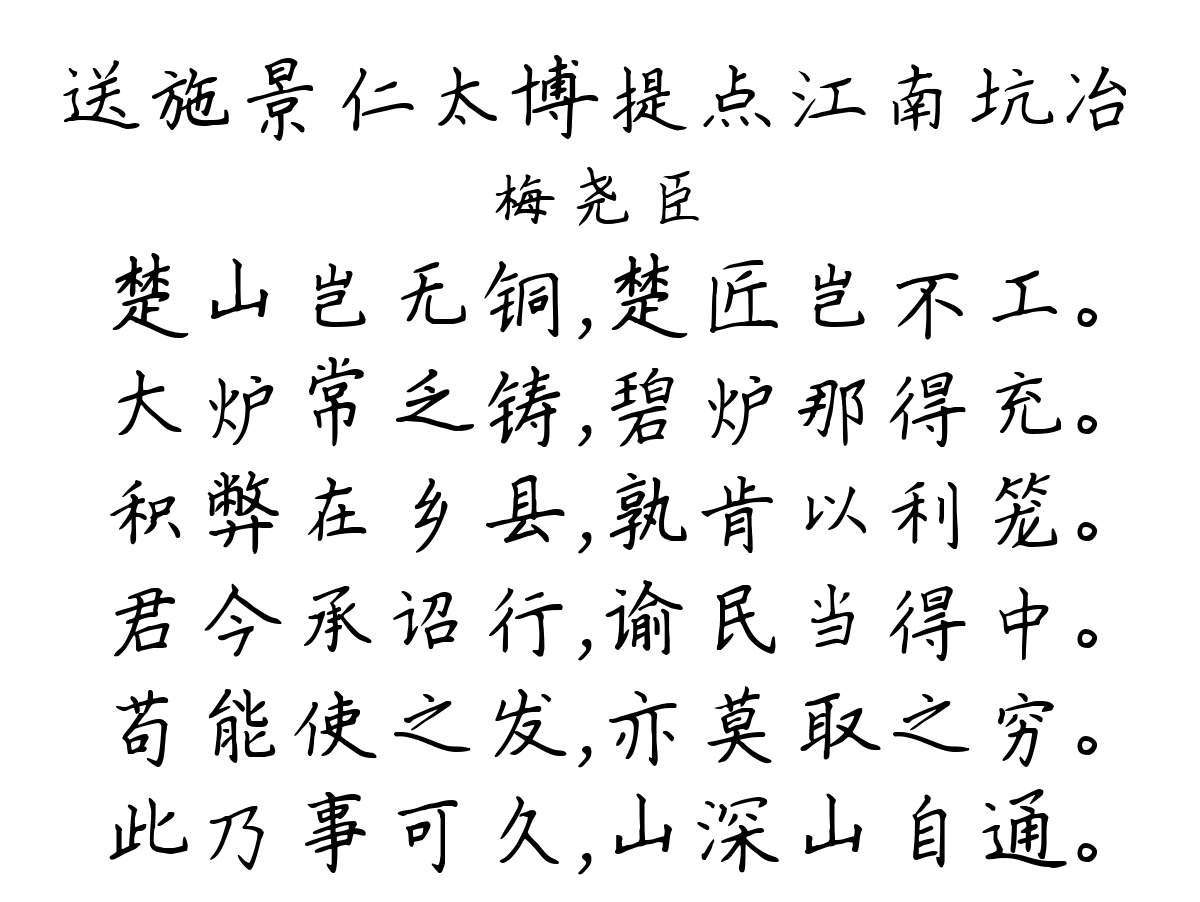 送施景仁太博提点江南坑冶
梅尧臣
楚山岂无铜,楚匠岂不工。
大炉常乏铸,碧炉那得充。
积弊在乡县,孰肯以利笼。
君今承诏行,谕民当得中。
苟能使之发,亦莫取之穷。
此乃事可久,山深山自通。